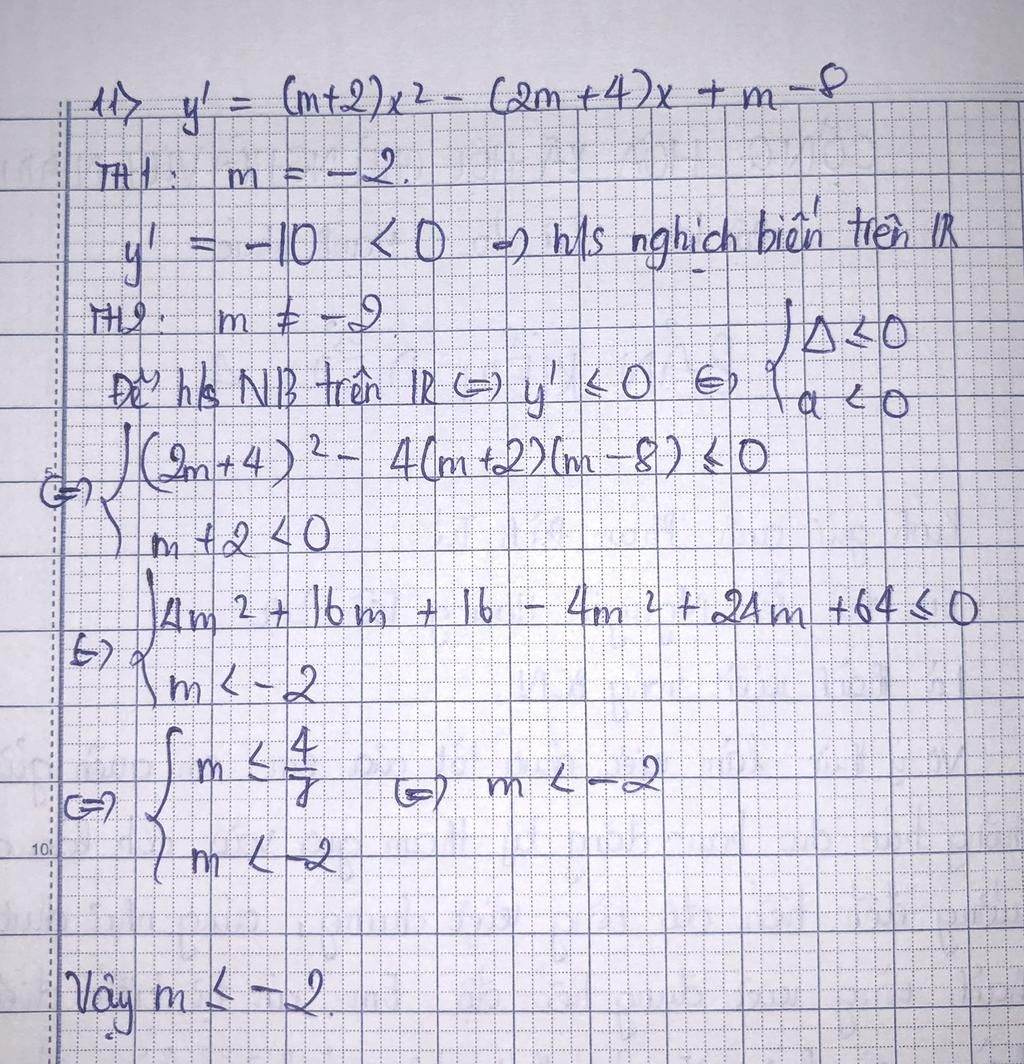 11> y' = (m+2)x² - (2m+4)x + m - 8
TH1: m = -2.
y' = -10 < 0 => h/s nghịch biến trên ℝ
TH2: m ≠ -2
Để h/s NB trên ℝ <=> y' ≤ 0 <=> { Δ ≤ 0
a < 0
<=> { (2m+4)² - 4(m+2)(m-8) ≤ 0
m + 2 < 0
<=> { 4m² + 16m + 16 - 4m² + 24m + 64 ≤ 0
m < -2
<=> { m ≤ 4/7 <=> m < -2
m < -2
10
Vậy m ≤ -2.